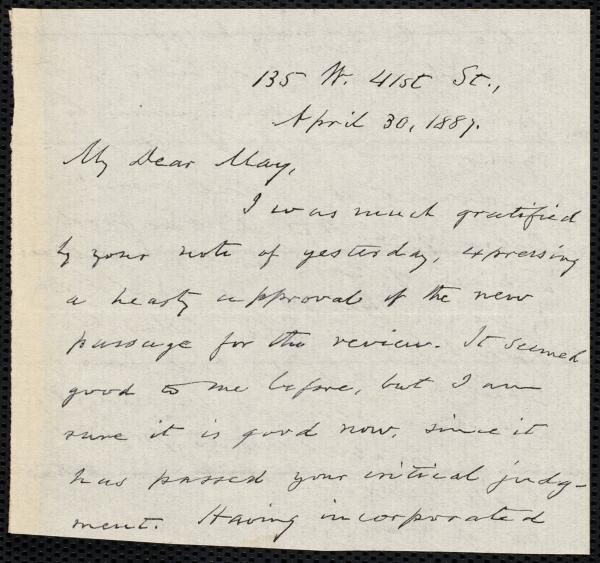 135 W. 41st St.,
April 30, 1887.
My Dear May,
I was much gratified
by your note of yesterday, expressing
a hearty approval of the new
passage for the review. It seemed
good to me before, but I am
sure it is good now, since it
has passed your critical judg-
ment. Having incorporated